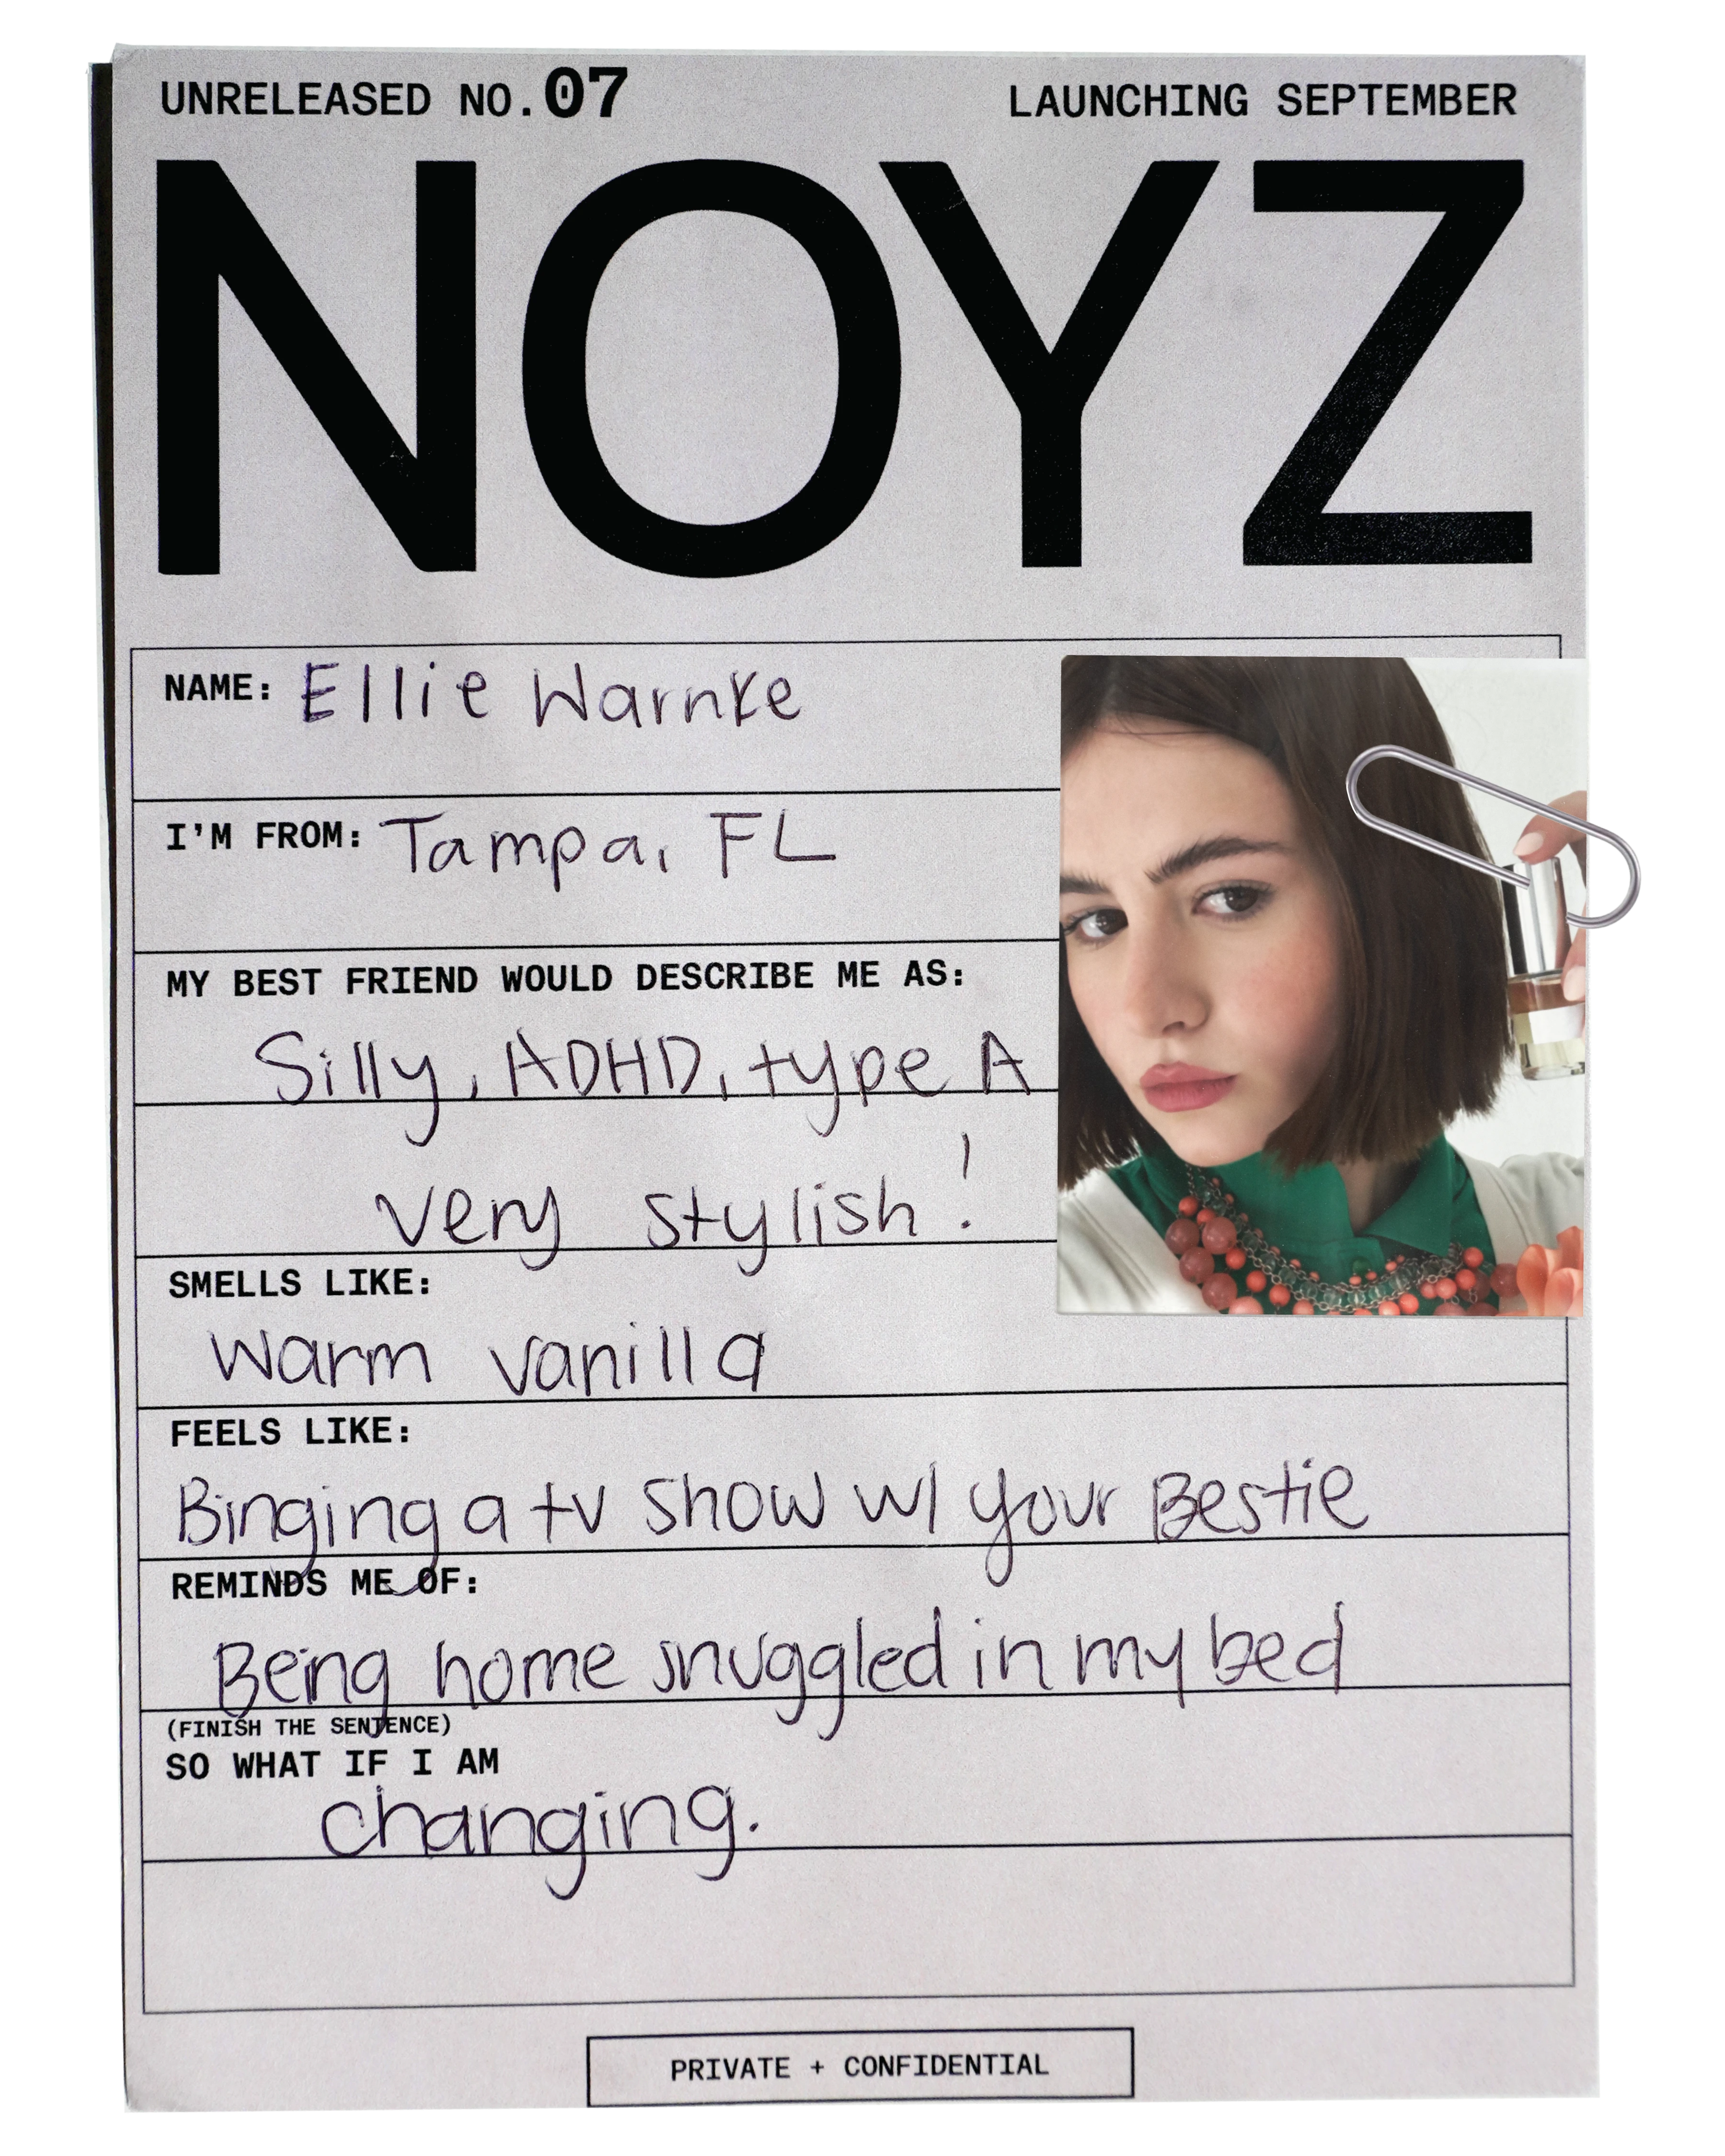 UNRELEASED NO.07
LAUNCHING SEPTEMBER
NOYZ
NAME: Ellie Warnke
I'M FROM: Tampa, FL
MY BEST FRIEND WOULD DESCRIBE ME AS:
Silly, ADHD, type A
very stylish!
SMELLS LIKE:
warm vanilla
FEELS LIKE:
Binging a tv show w/ your Bestie
REMINDS ME OF:
Being home snuggled in my bed
(FINISH THE SENTENCE)
SO WHAT IF I AM
changing.
PRIVATE + CONFIDENTIAL